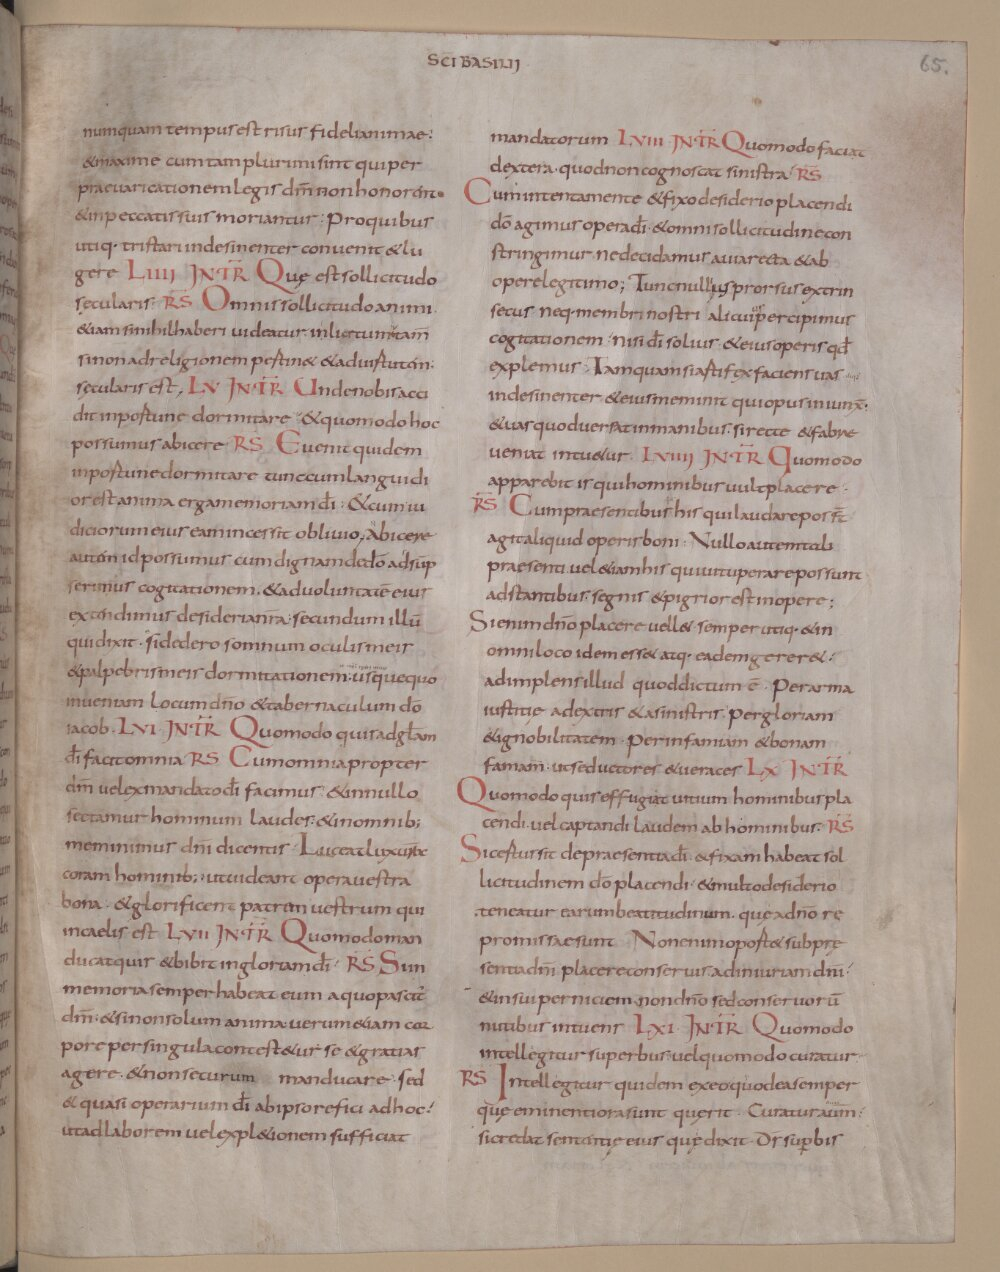 SCI BASILII
65.
numquam tempus est risus fidelianimae:
&maxime cum tam plurimi sint qui per
praevaricationem legis dm̄ non honorent.
&inpeccatis suis moriantur: Pro quibus
utiq· tristari indesinenter convenit &lu
gere LIIII INTR̄ Quę est sollicitudo
sęcularis· RS Omnis sollicitudo animi·
&iam si nihil haberi videatur inlicitum tam̄
si non ad religionem pertin& & ad virtutem·
sęcularis est, LV INTR̄ Unde nobis acci
dit inportunę dormitare· & quomodo hoc
possumus abicere RS Evenit quidem
inportune dormitare tunc cum languidi
or est anima erga memoriam dī· & cum iu
diciorum eius eam incessit oblivio, Abicere
autem id possumus cum dignam de dō adsūp
serimus cogitationem· & ad voluntatē eius
extendimus desideria nr̄a· secundum illū
qui dixit· si dedero somnum oculis meis
& palpebris meis dormitationem· usque quo
inveniam locum dn̄o & tabernaculum dō
iacob· LVI INTR̄ Quomodo quis ad gl̄am
dī facit omnia RS Cum omnia propter
dm̄ vel ex mandato dī facimus· & in nullo
sectamur hominum laudes· & in omnib;
meminimus dn̄i dicentis· Luceat lux
coram hominib; ut videant opera vestra
bona· & glorificent patrem vestrum qui
in caelis est LVII INTR̄ Quomodo man
ducat quis & bibit in gloriam dī· RS Si in
memoria semper habeat eum a quo pascit̄
dm̄· & si non solum anima verum &iam cor
pore per singula contest&ur se & gratias
agere· & non securum manducare· sed
& quasi operarium dī ab ipso refici ad hoc:
ut ad laborem vel expl&ionem sufficiat
mandatorum LVIII INTR̄ Quomodo faciat
dextera· quod non cognoscat sinistra RS
Cum intenta mente & fixo desiderio placendi
dō agimus opera dī· & omni sollicitudine con
stringimur ne decidamus a via recta & ab
opere legitimo; Tunc nullius prorsus extrin
secus neq· membri nostri alicuius percipimus
cogitationem· nisi dī solius· & eius operis qd̄
explemus· Tamquam si artifex faciens vas
indesinenter & eius meminit qui opus iniunx·
& vas quod versat in manibus· si recte & fabre
veniat intu&ur· LVIIII INTR̄ Quomodo
apparebit is qui hominibus vult placere·
RS Cum praesentibus his qui laudare poss̄t
agit aliquid operis boni· Nullo autem tali
praesenti vel &iam his qui vituperare possunt
adstantibus· segnis & pigrior est in opere;
Si enim dn̄o placere vell& semper utiq· & in
omni loco idem ess& atq· eadem gerer&·
adimplens illud quod dictum ē· Per arma
iustitię a dextris & a sinistris· per gloriam
& ignobilitatem· Per infamiam & bonam
famam· ut seductores & veraces LX INTR̄
Quomodo quis effugiat vitium hominibus pla
cendi· vel captandi laudem ab hominibus· RS
Si certus sit de praesentia dī· & fixam habeat sol
licitudinem dō placendi· & multo desiderio
teneatur earum beatitudinum· quę a dn̄o rę
promissae sunt· Non enim post& sub prę
sentia dn̄i placere conservis ad iniuriam dn̄i:
& in sui perniciem· non dn̄o sed conservorū
nutibus intuens LXI INTR̄ Quomodo
intellegitur superbus· vel quomodo curatur·
RS Intellegitur quidem ex eo quod ea semper
quę eminentiora sunt quęrit· Curatur aūm·
si credat sententię eius quę dixit· D̄s superbis